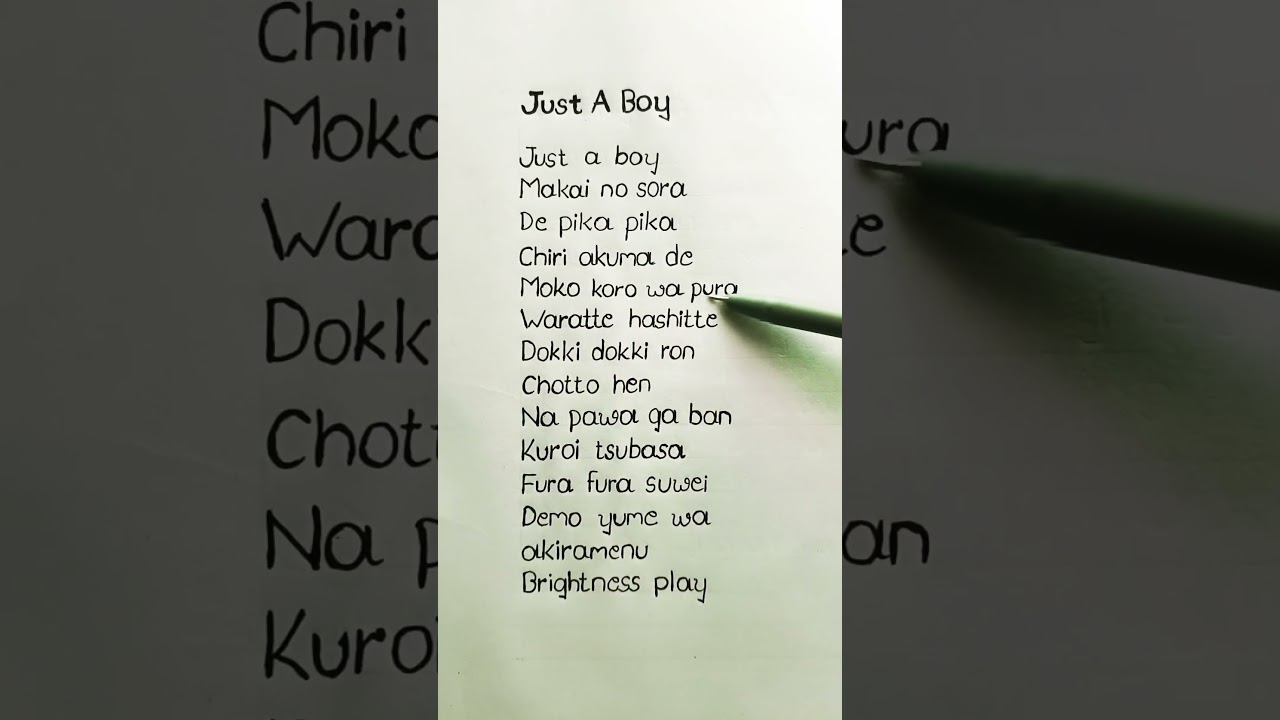 Just A Boy
Just a boy
Makai no sora
De pika pika
Chiri akuma de
Moko koro wa pura
Waratte hashitte
Dokki dokki ron
Chotto hen
Na pawa ga ban
Kuroi tsubasa
Fura fura suwei
Demo yume wa
akiramenu
Brightness play